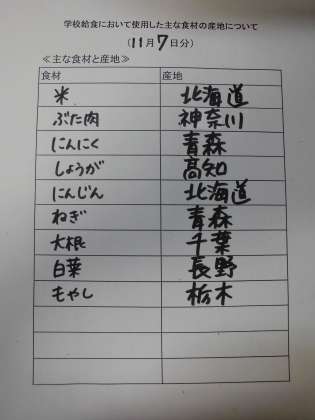 学校給食において使用した主な食材の産地について
(11月7日分)
≪主な食材と産地≫
食材 産地
米 北海道
ぶた肉 神奈川
にんにく 青森
しょうが 高知
にんじん 北海道
ねぎ 青森
大根 千葉
白菜 長野
もやし 栃木